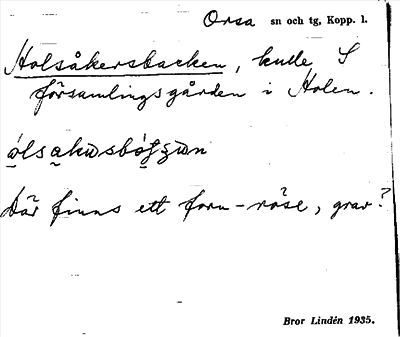 Orsa sn och tg, Kopp. l.
Holsåkersbacken, kulle S
församlingsgården i Holen.
Där finns ett forn-röse, grav?
Bror Lindén 1935.